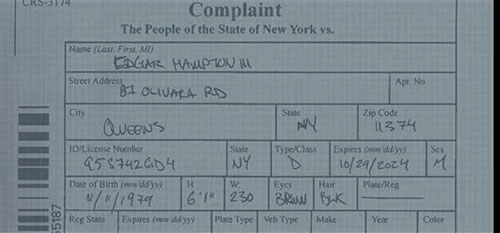 CRS-3174
Complaint
The People of the State of New York vs.
Name (Last, First, MI)
EDGAR HAMPTON III
Street Address Apt. No
87 OLIVARA RD
City State Zip Code
QUEENS NY 11374
ID/License Number State Type/Class Expires (mm/dd/yy) Sex
958742GD4 NY D 10/29/2024 M
Date of Birth (mm/dd/yy) H W Eyes Hair Plate/Reg
11/11/1979 6'1" 230 BRWN BLK
Reg State Expires (mm/dd/yy) Plate Type Veh Type Make Year Color